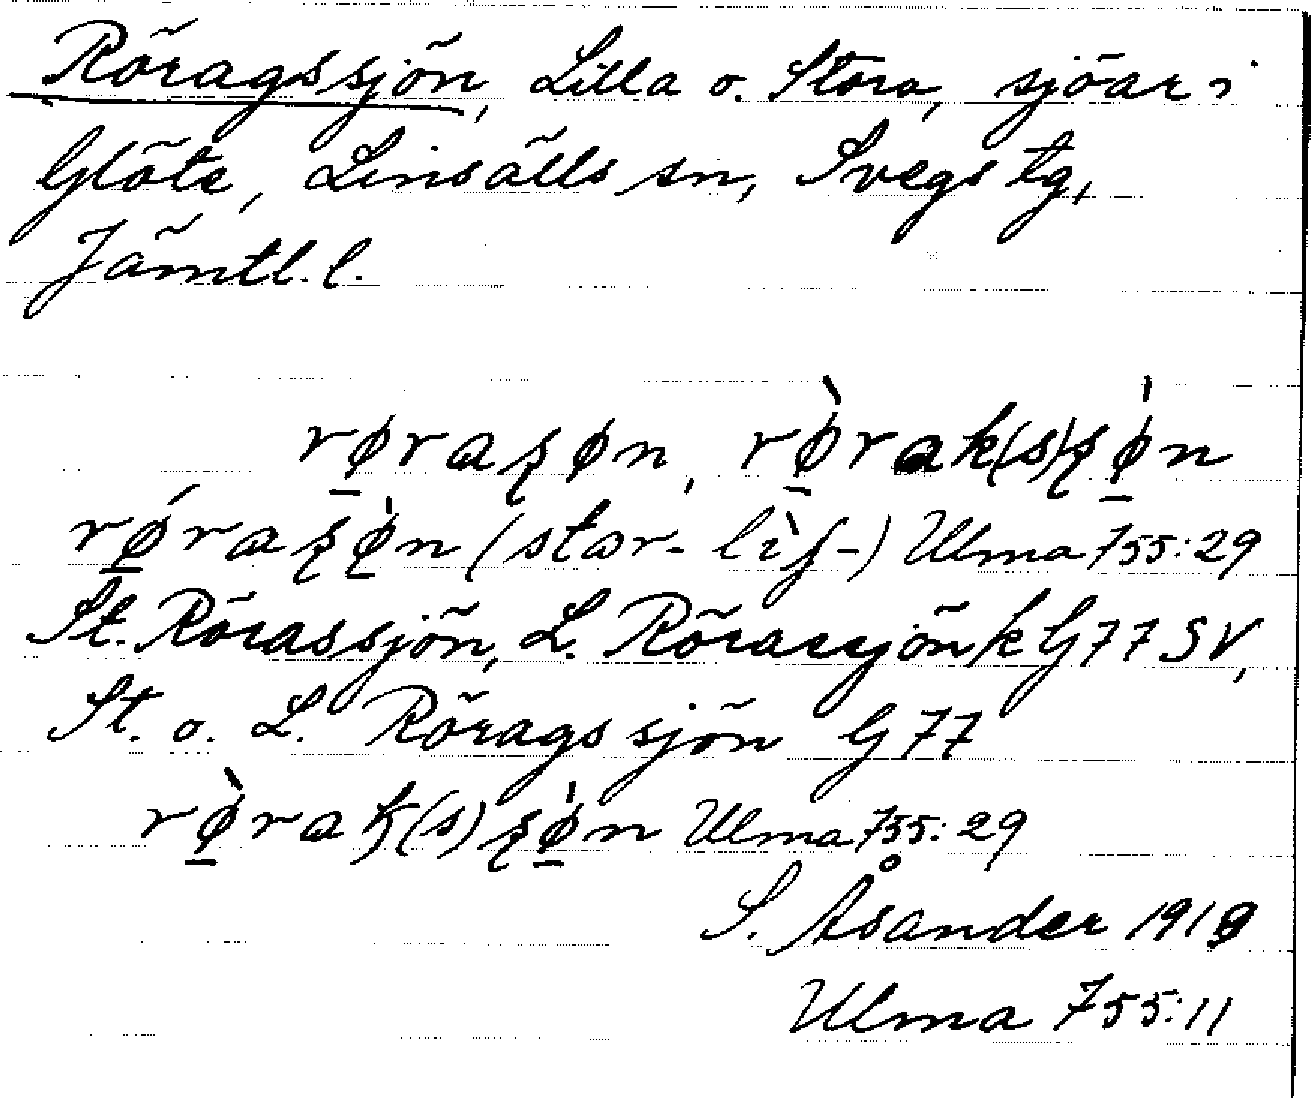 Röragssjön, Lilla o. Stora, sjöar i
Glöte, Linsälls sn, Svegs tg,
Jämtl. l.
rø̠raʂøn, rø̠̀rak(s)ʂø̠̍n
rǿ̠raʂø̠̍n (stɷr- lìʃ-) Ulma 755:29
St. Rörassjön, L. Rörassjön k G77 SV,
St. o. L. Röragssjön G77
rø̠̀rak(s)ʂø̠̍n Ulma 755:29
S. Åsander 1919
Ulma 755:11